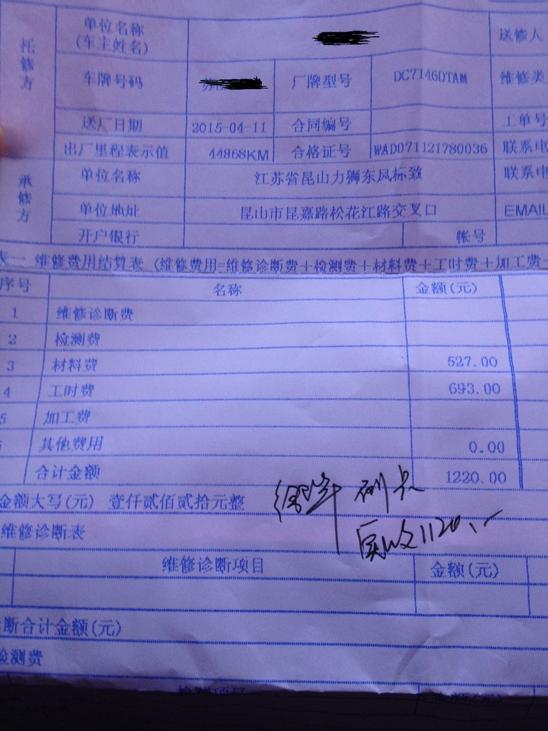 托修方
单位名称 (车主姓名) 送修人
车牌号码 厂牌型号 DC7146DTAM 维修类
送厂日期 2015-04-11 合同编号 工单号
出厂里程表示值 44868KM 合格证号 WAD071121780036 联系电
承修方
单位名称 江苏省昆山力狮东风标致 联系电
单位地址 昆山市昆嘉路松花江路交叉口 EMAIL
开户银行 帐号
表一 维修费用结算表 (维修费用=维修诊断费+检测费+材料费+工时费+加工费+
序号 名称 金额(元)
1 维修诊断费
2 检测费
3 材料费 527.00
4 工时费 693.00
5 加工费
6 其他费用 0.00
合计金额 1220.00
金额大写(元) 壹仟贰佰贰拾元整
刷卡
实收1120.-
维修诊断表
维修诊断项目 金额(元)
诊断合计金额(元)
检测费